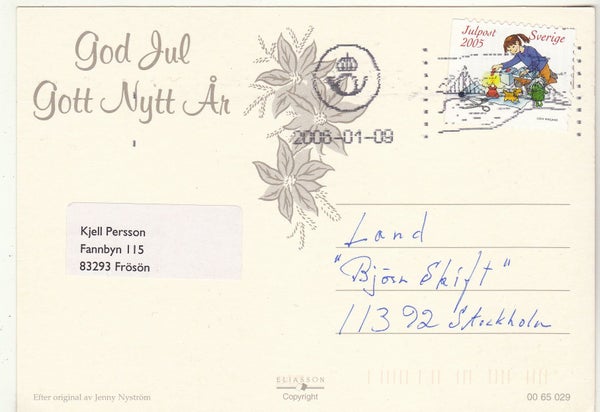 God Jul
Gott Nytt År
Julpost Sverige
2005
2006-01-09
Kjell Persson
Fannbyn 115
83293 Frösön
Land
"Björn Skift"
11392 Stockholm
Efter original av Jenny Nyström
ELIASSON
Copyright
00 65 029